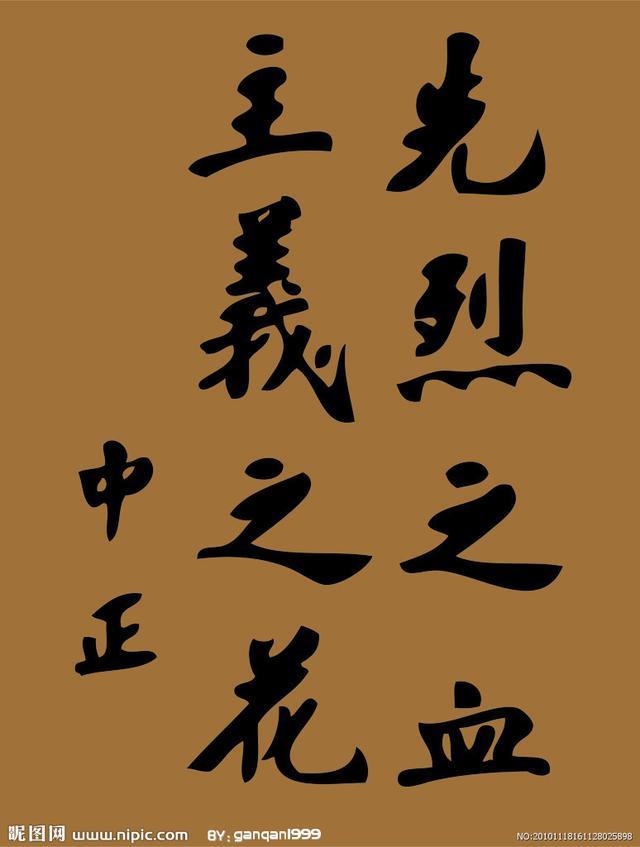 先烈之血
主義之花
中正
昵图网 www.nipic.com BY: ganqan1999
NO:20101118161128025898